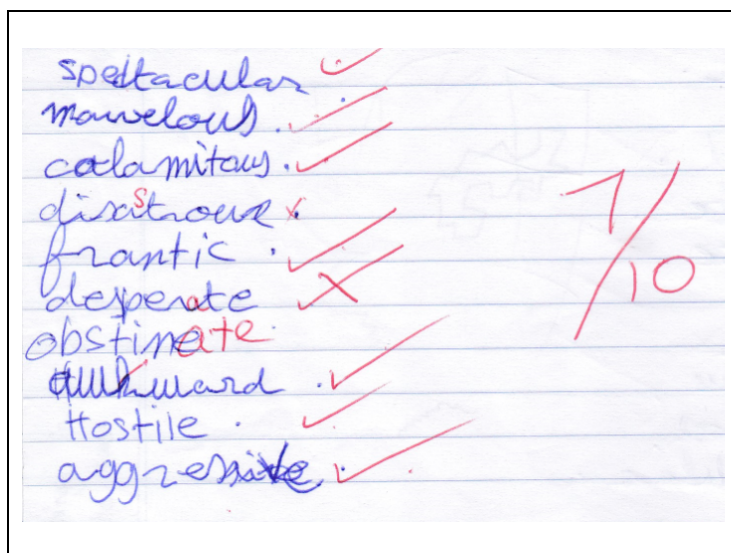 spectacular
marvelous.
calamitous.
disastrous
frantic.
desperate
obstinate.
awkward.
Hostile.
aggressive.
7/10